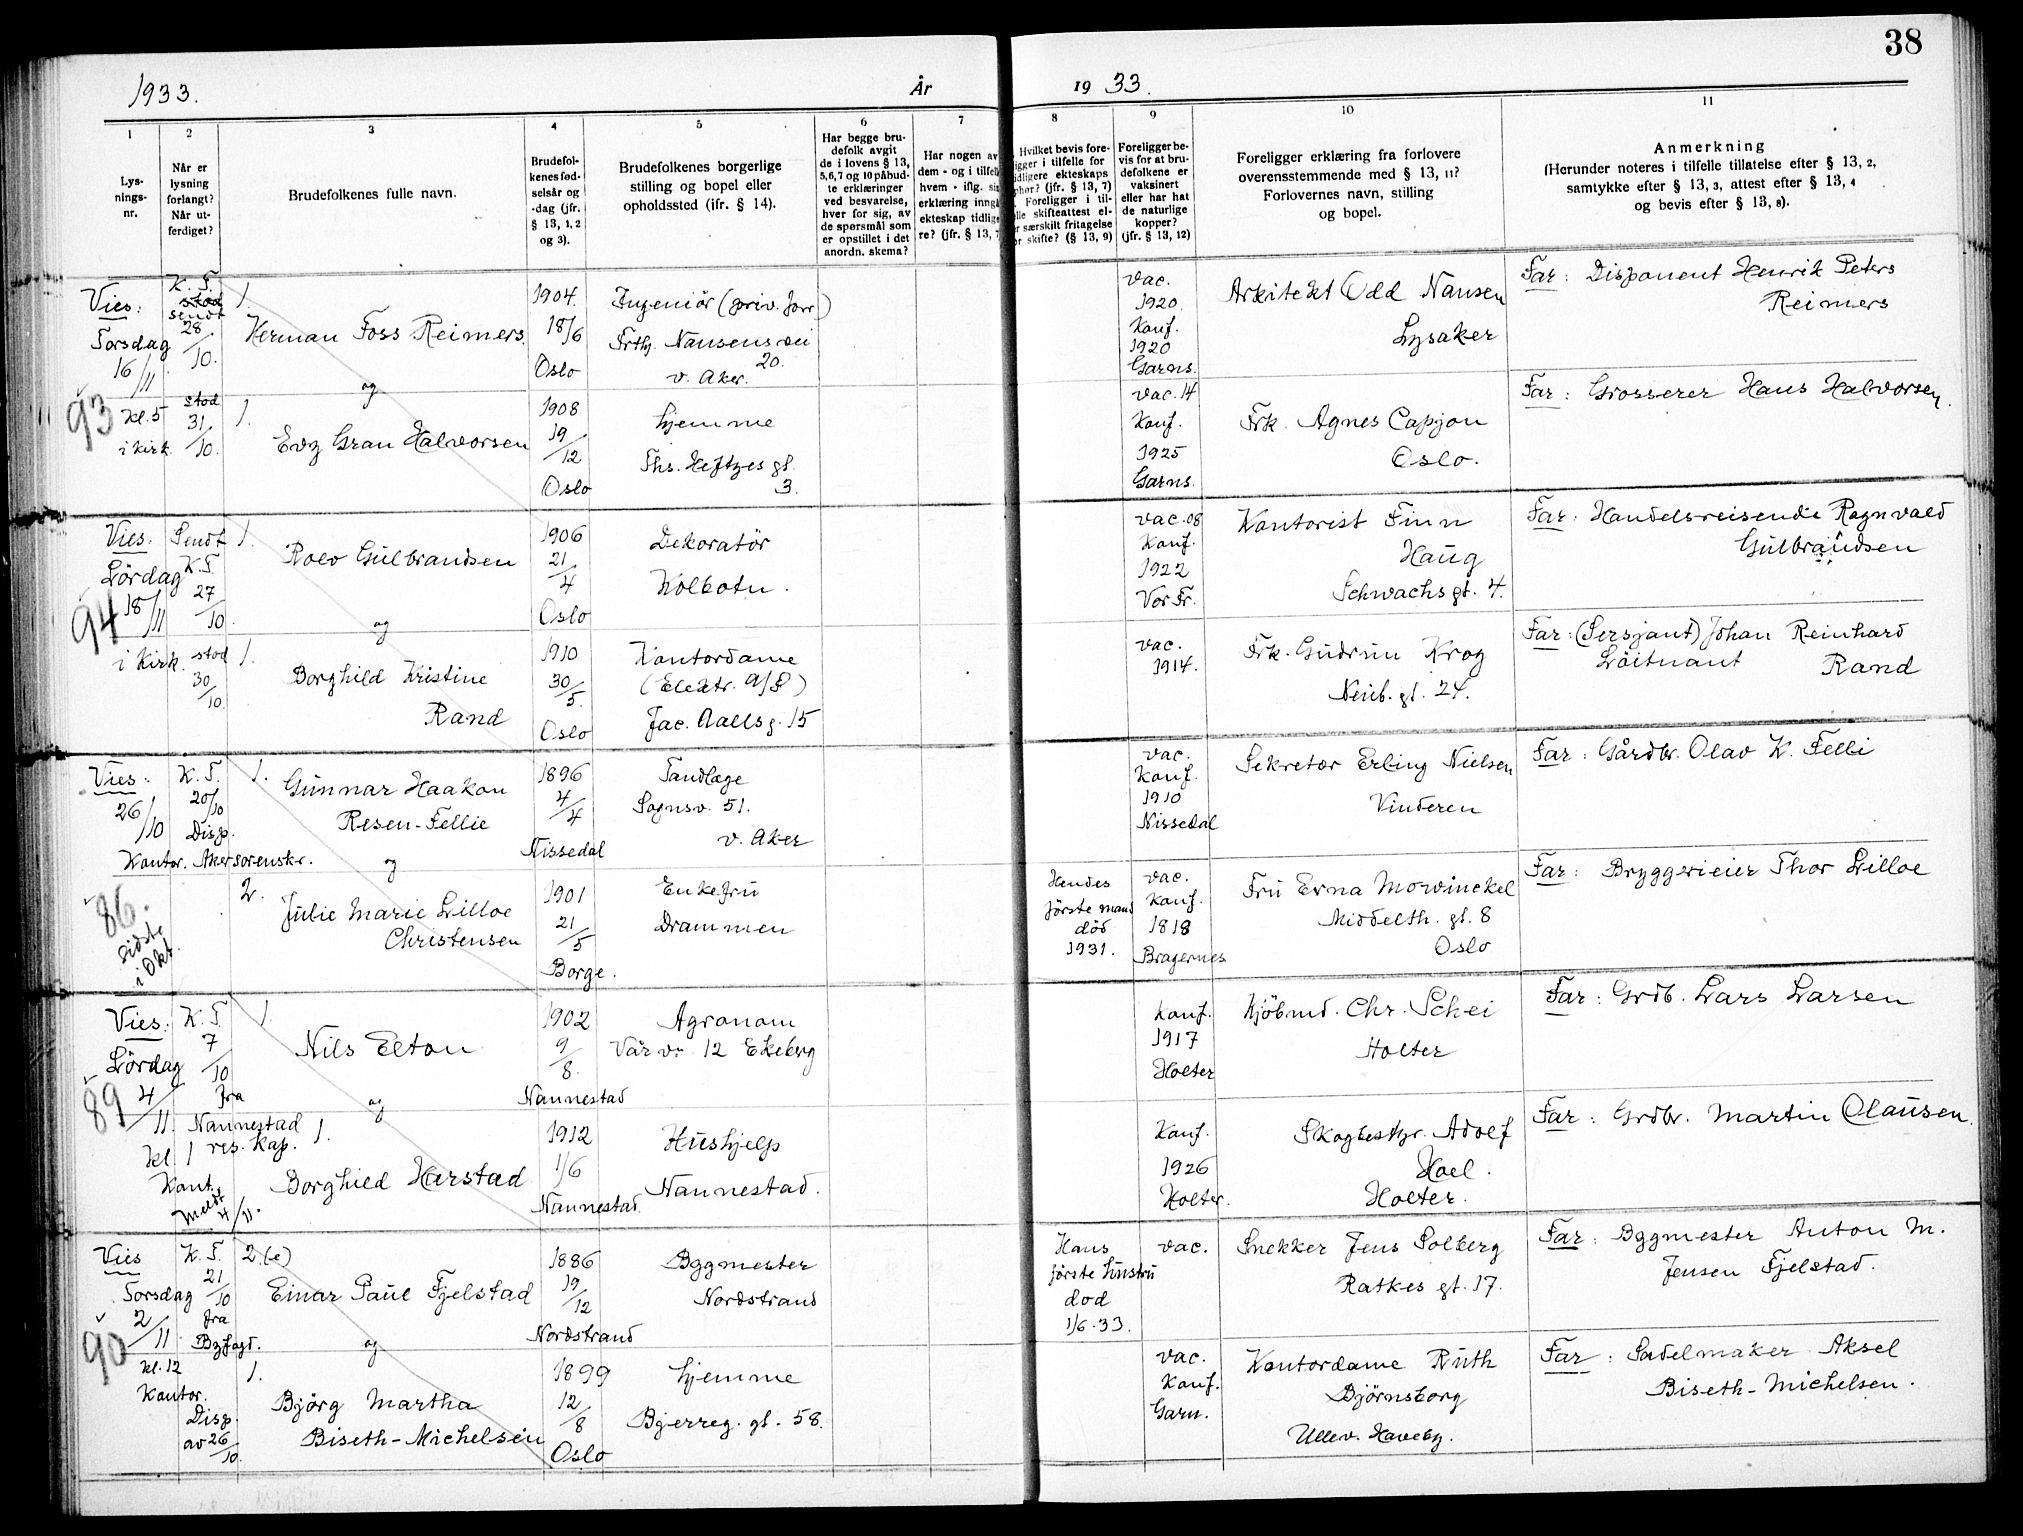 38
1933.
År
19 33.
1
2
3
4
5
6
7
8
9
10
11
Lys-
nings-
nr.
Når er
lysning
forlangt?
Når ut-
ferdiget?
Brudefolkenes fulle navn.
Brudefol-
kenes fød-
selsår og
-dag (jfr.
§ 13, 1, 2
og 3).
Brudefolkenes borgerlige
stilling og bopel eller
opholdssted (ifr. § 14).
Har begge bru-
defolk avgit
de i lovens § 13,
5,6,7 og 10 påbud-
te erklæringer
ved besvarelse,
hver for sig, av
de spørsmål som
er opstillet i det
anordn. skema?
Har nogen av
dem - og i tilfelle
hvem - iflg. sin
erklæring inngått
ekteskap tidlige-
re? (jfr. § 13, 7
Hvilket bevis fore-
ligger i tilfelle for
tidligere ekteskaps
ophør? (jfr. § 13, 7)
Foreligger i til-
felle skifteattest el-
er særskilt fritagelse
or skifte? (§ 13, 9)
Foreligger be-
vis for at bru-
defolkene er
vaksinert
eller har hat
de naturlige
kopper?
(jfr. § 13, 12)
Foreligger erklæring fra forlovere
overensstemmende med § 13, 11?
Forlovernes navn, stilling
og bopel.
Anmerkning
(Herunder noteres i tilfelle tillatelse efter § 13, 2,
samtykke efter § 13, 3, attest efter § 13, 4
og bevis efter § 13, 8).
93
Vies:
Torsdag
16/11
kl. 5
i Kirk.
K. T.
stod
sendt
28/10.
1.
Herman Foss Reimers.
1904.
18/6
Oslo
Ingeniør (priv. forr)
Frtj. Nansens vei
20.
v. Aker.
vac.
1920.
Konf.
1920
Garns.
Arkitekt Odd Nansen
Lysaker
Far: Disponent Henrik Peters
Reimers
og
stod
31/10.
1.
Evy Gran Halvorsen
1908
19/12
Oslo
hjemme
Ths. Heftyes gt.
3.
vac. 14
Konf.
1925
Garns.
Frk. Agnes Capjon
Oslo.
Far: Grosserer Hans Halvorsen.
94
Vies:
Lördag
18/11
i Kirk.
Sendt
K. T.
27/10.
1.
Rolv Gulbrandsen
1906
21/4
Oslo
Dekoratør
Kolbotn.
vac. 08
Konf.
1922
Vor Fr.
Kontorist Finn
Haug
Schwachs gt. 4.
Far: Handelsreisende Ragnvald
Gulbrandsen
og
stod
30/10.
1.
Borghild Kristine
Rand
1910
30/5.
Oslo
Kontordame
(Elektr. A/S)
Jac. Aalls g. 15
vac.
1914.
Frk. Gudrun Krog
Neub. gt. 24.
Far: (Sersjant) Johan Reinhard
Löitnant Rand
86.
sidste
i Okt.
Vies:
26/10
K. T.
20/10
Disp.
Kontor. Akersorenskr.
1.
Gunnar Haakon
Resen-Fellie
1896
4/4
Nissedal
Tandlæge
Sognsv. 51.
v. Aker
vac.
Konf.
1910
Nissedal
Sekretær Erling Nielsen
Vinderen
Far: Gårdbr. Olav K. Felli
og
2.
Julie Marie Lilloe
Christensen
1901
21/5
Borge.
Enkefru
Drammen
Hendes
förste mand
död
1931.
vac.
Konf.
1818
Bragernes
Fru Erna Mowinckel
Middelth. gt. 8
Oslo
Far: Bryggerieier Thor Lilloe
89
Vies:
Lördag
4/11.
kl. 1
Kont.
Meldt
4/11.
K. T.
7/10
fra
Nannestad
res. Kap.
1.
Nils Elton
1902
9/8.
Nannestad
Agronom
Vår v. 12 Ekeberg
Konf.
1917
Holter
Kjöbmd. Chr. Schei
Holter
Far: Grdb. Lars Larsen
og
1.
Borghild Harstad
1912
1/6
Nannestad.
Hushjelp
Nannestad.
Konf.
1926
Holter.
Skogbestyr. Adolf
Hoel.
Holter.
Far: Grdbr. Martin Olausen.
90
Vies
Torsdag
2/11
kl. 12
Kontor.
K. T.
21/10
fra
Byfogd.
Disp.
av 26/10.
2 (e)
Einar Paul Fjelstad
1886
19/12
Nordstrand
Byggmester
Nordstrand
Hans
förste hustru
död
1/6. 33.
vac.
Snekker Jens Solberg
Ratkes gt. 17.
Far: Byggmester Anton M.
Jensen Fjelstad.
og
1.
Bjørg Martha
Biseth-Michelsen
1899
12/8
Oslo
hjemme
Bjerreg. gt. 58.
vac.
Konf.
Garn.
Kontordame Ruth
Björnsborg
Ullev. Haveby.
Far: Sadelmaker Aksel
Biseth-Michelsen.